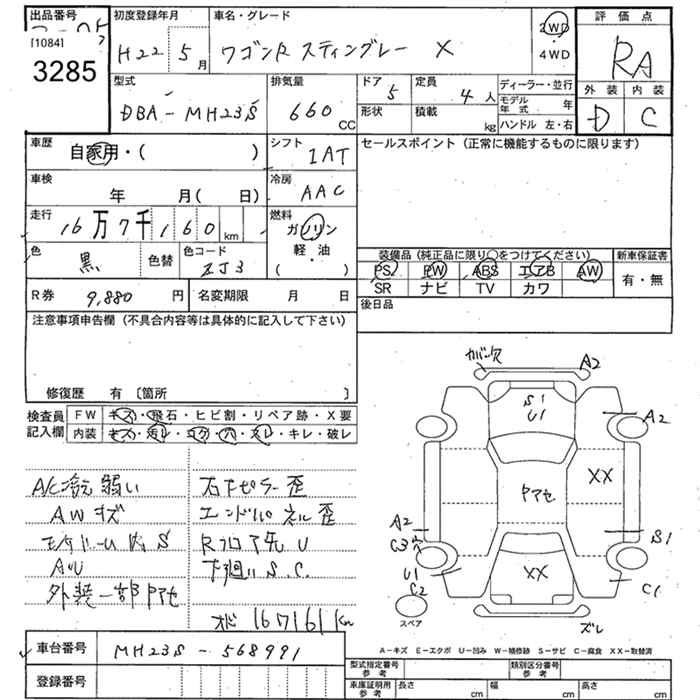 出品番号
[1084]
3285
初度登録年月
H22 5月
車名・グレード
ワゴンR スティングレー X
2WD
・
4WD
評価点
RA
外装 内装
D C
型式
DBA-MH23S
排気量
660 CC
ドア 5
形状
定員 4人
積載 kg
ディーラー・並行
モデル年式 年
ハンドル 左・右
車歴
自家用・( )
シフト
IAT
セールスポイント (正常に機能するものに限ります)
車検
年 月( 日)
冷房
AAC
走行
16万7千160km
燃料
ガソリン
軽・油
( )
色
黒
色替
色コード
ZJ3
装備品 (純正品に限り○をつけてください)
PS PW ABS エアB AW
SR ナビ TV カワ
新車保証書
有・無
R券 9,880円
名変期限 月 日
後日品
注意事項申告欄 (不具合内容等は具体的に記入して下さい)
修復歴 有 〔箇所 〕
検査員
記入欄
FW キズ・飛石・ヒビ割・リペア跡・X要
内装 キズ・汚レ・コゲ・穴・スレ・キレ・破レ
A/C冷え弱い
AWキズ
AU
外装一部ヤケアセ
右センターピラー歪
エンドパネル歪
Rフロア先U
下廻りS.C.
オド 167161Km
カバー欠
A2
S1
U1
A2
XX
アセ
A2
C3穴
S1
U1
C2
XX
C1
スペア
ズレ
A-キズ E-エクボ U-凹み W-補修跡 S-サビ C-腐食 XX-取替済
車台番号 MH23S-568991
登録番号
型式指定番号
参考
類別区分番号
参考
車庫証明用
参考
長さ cm 幅 cm 高さ cm